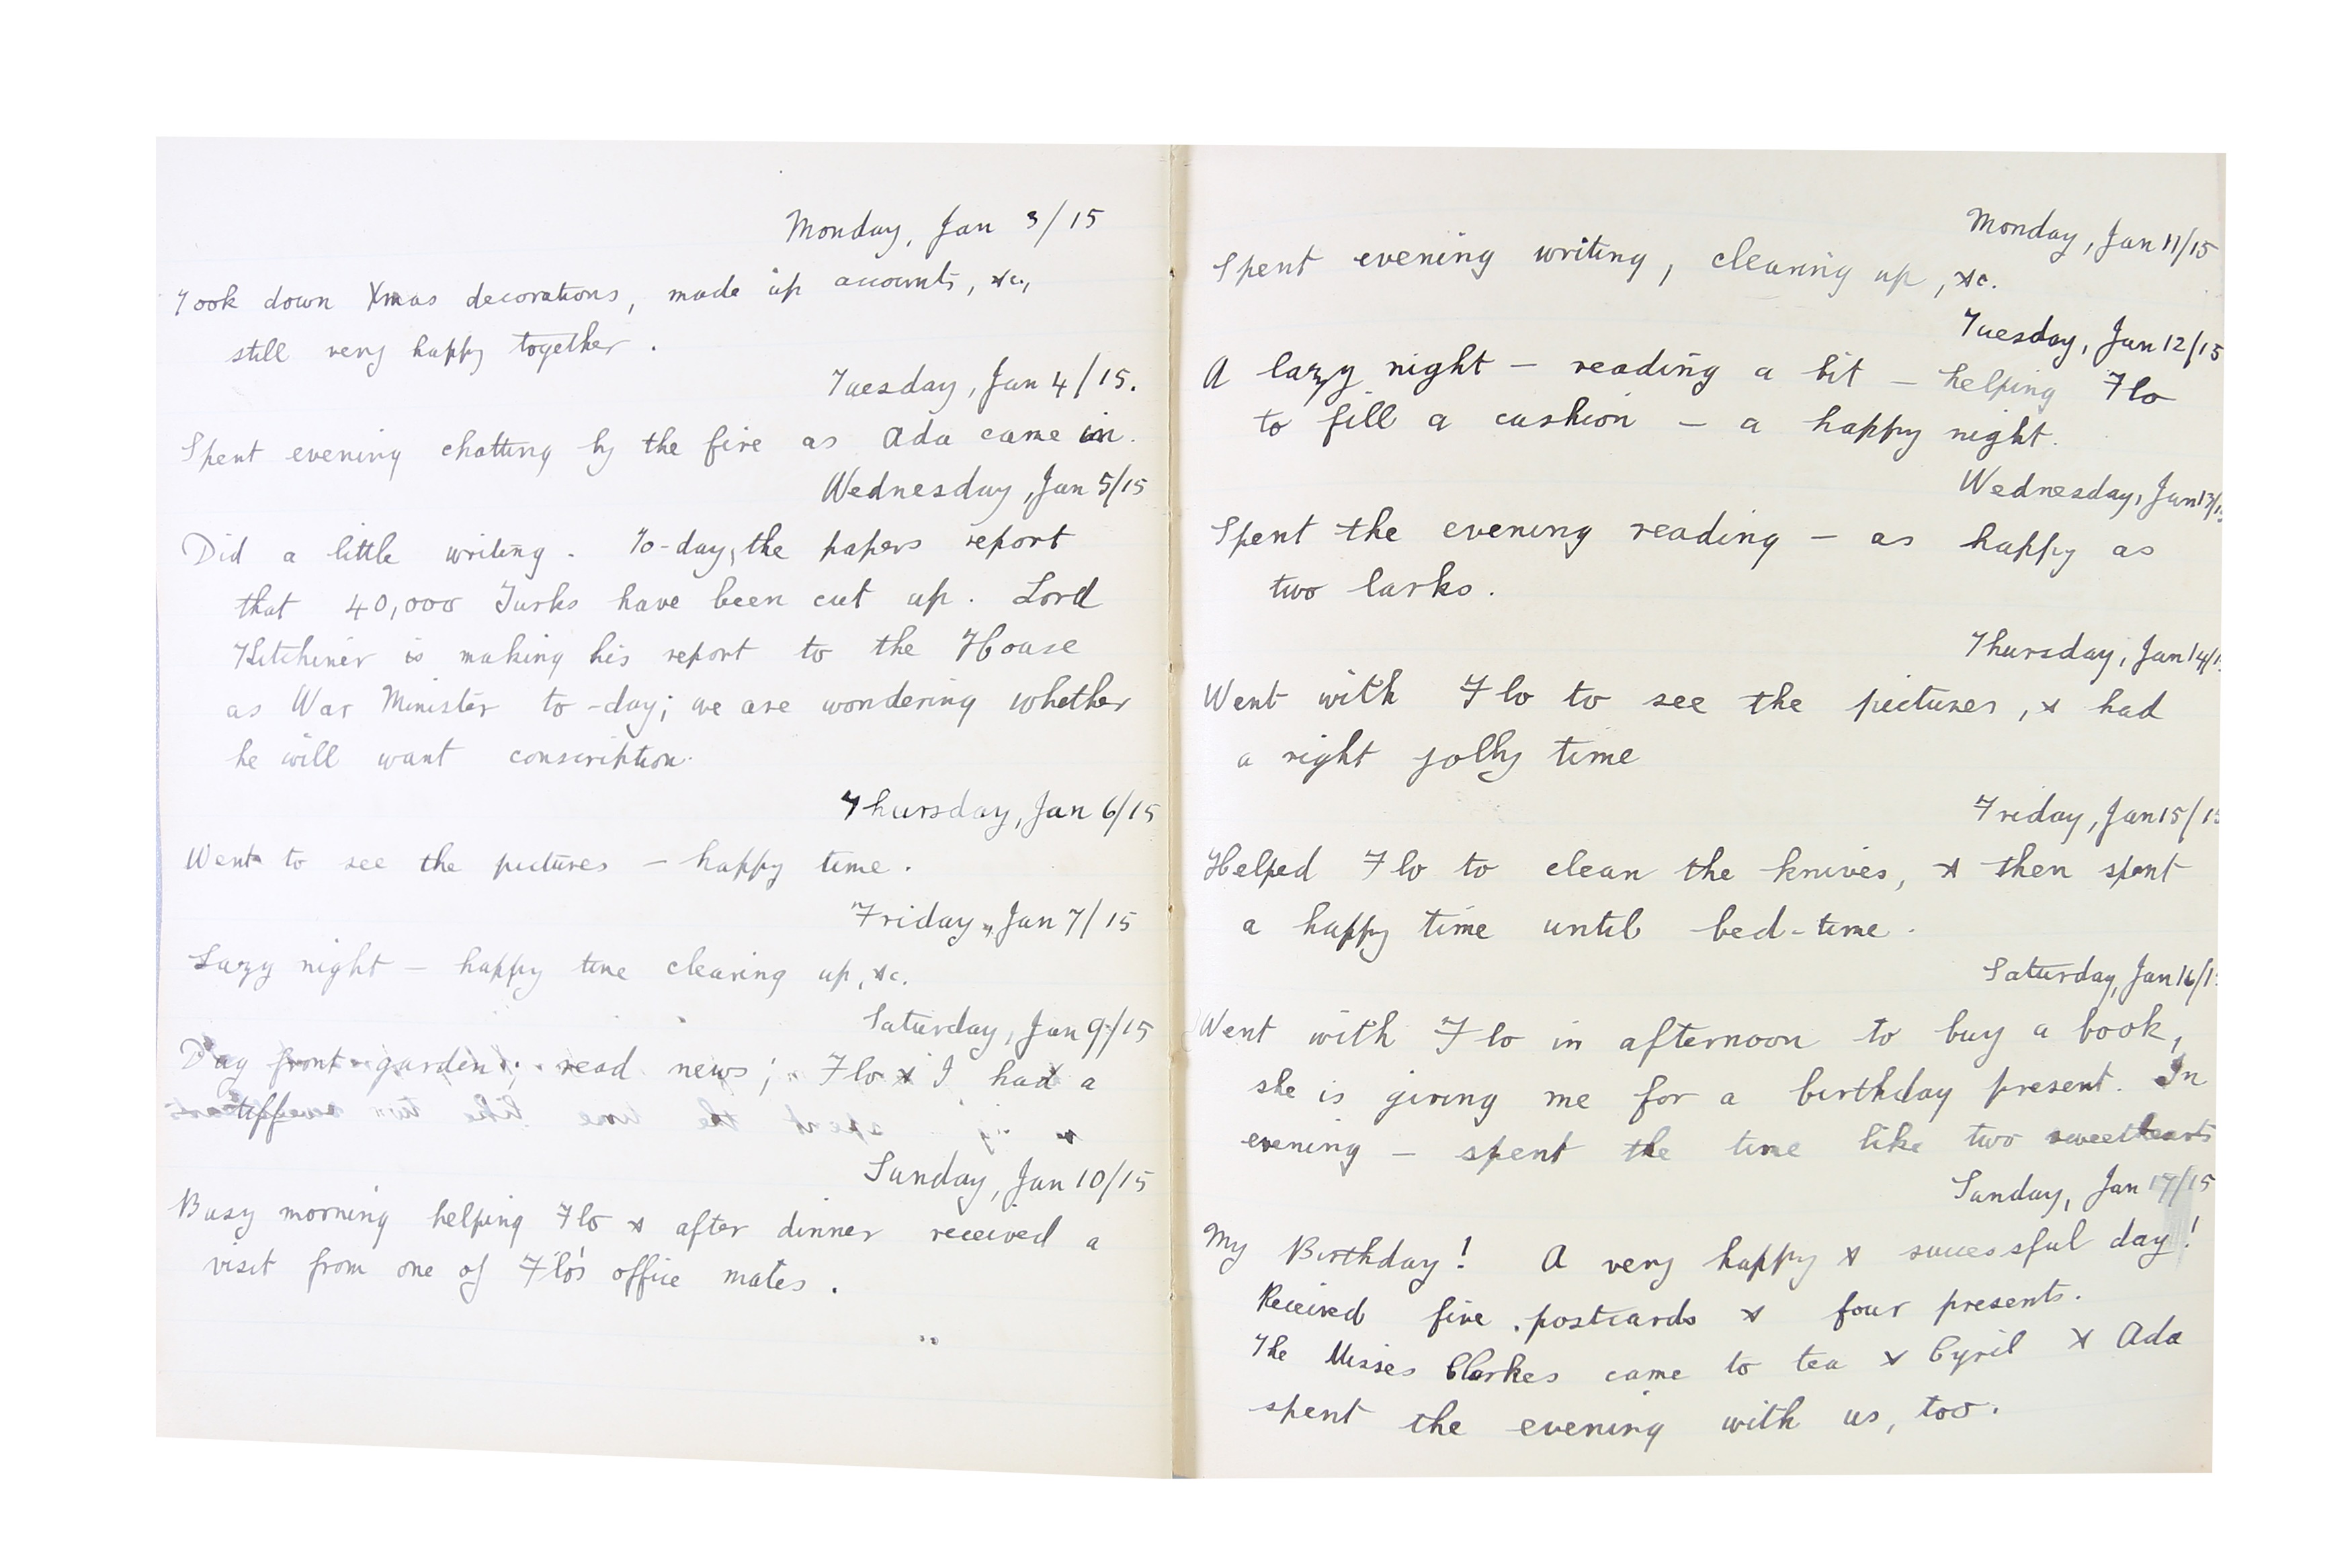 Monday, Jan 3/15
Took down Xmas decorations, made up accounts, &c.,
still very happy together.
Tuesday, Jan 4/15.
Spent evening chatting by the fire as Ada came in.
Wednesday, Jan 5/15
Did a little writing. To-day, the papers report
that 40,000 Turks have been cut up. Lord
Kitchiner is making his report to the House
as War Minister to-day; we are wondering whether
he will want conscription.
Thursday, Jan 6/15
Went to see the pictures — happy time.
Friday, Jan 7/15
Lazy night — happy time clearing up, &c.
Saturday, Jan 9/15
front garden; read news; Flo & I had a
tiff
Sunday, Jan 10/15
Busy morning helping Flo & after dinner received a
visit from one of Flo's office mates.
Monday, Jan 11/15
Spent evening writing, clearing up, &c.
Tuesday, Jan 12/15
A lazy night — reading a bit — helping Flo
to fill a cushion — a happy night.
Wednesday, Jan 13/1
Spent the evening reading — as happy as
two larks.
Thursday, Jan 14/1
Went with Flo to see the pictures, & had
a right jolly time
Friday, Jan 15/15
Helped Flo to clean the knives, & then spent
a happy time until bed-time.
Saturday, Jan 16/1
Went with Flo in afternoon to buy a book,
she is giving me for a birthday present. In
evening — spent the time like two sweethearts
Sunday, Jan 17/15
My Birthday! A very happy & successful day!
Received five postcards & four presents.
The Misses Clarkes came to tea & Cyril & Ada
spent the evening with us, too.